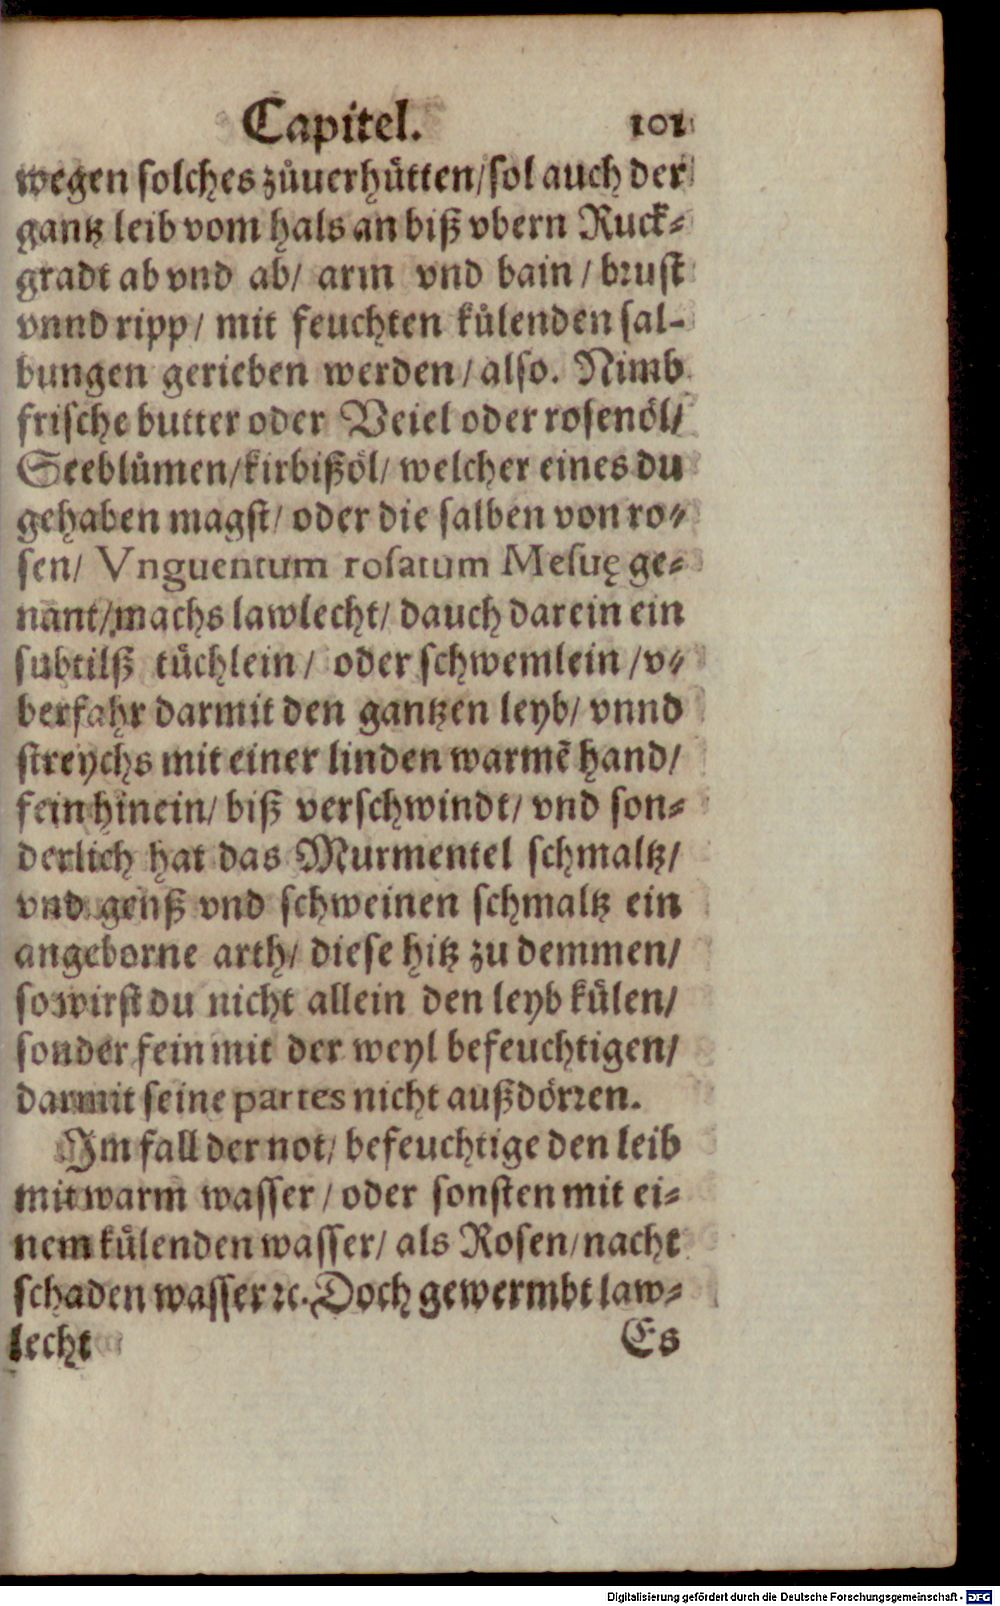 Capitel. 101
wegen solches zůuerhütten/ sol auch der
gantz leib vom hals an biß vbern Ruck-
gradt ab vnd ab/ arm vnd bain / brust
vnnd ripp/ mit feuchten külenden sal-
bungen gerieben werden/ also. Nimb
frische butter oder Veiel oder rosenöl/
Seeblůmen/ kirbißöl/ welcher eines du
gehaben magst/ oder die salben von ro-
sen/ Vnguentum rosatum Mesuę ge-
nant/ machs lawlecht/ dauch darein ein
subtilß tüchlein/ oder schwemlein /v-
berfahr darmit den gantzen leyb/ vnnd
streychs mit einer linden warmē hand/
fein hinein/ biß verschwindt/ vnd son-
derlich hat das Murmentel schmaltz/
vnd genß vnd schweinen schmaltz ein
angeborne arth/ diese hitz zu demmen/
so wirst du nicht allein den leyb külen/
sonder fein mit der weyl befeuchtigen/
darmit seine partes nicht außdörren.
Im fall der not/ befeuchtige den leib
mit warm wasser / oder sonsten mit ei-
nem külenden wasser/ als Rosen/ nacht
schaden wasser ꝛc. Doch gewermbt law-
lecht Es
Digitalisierung gefördert durch die Deutsche Forschungsgemeinschaft - DFG